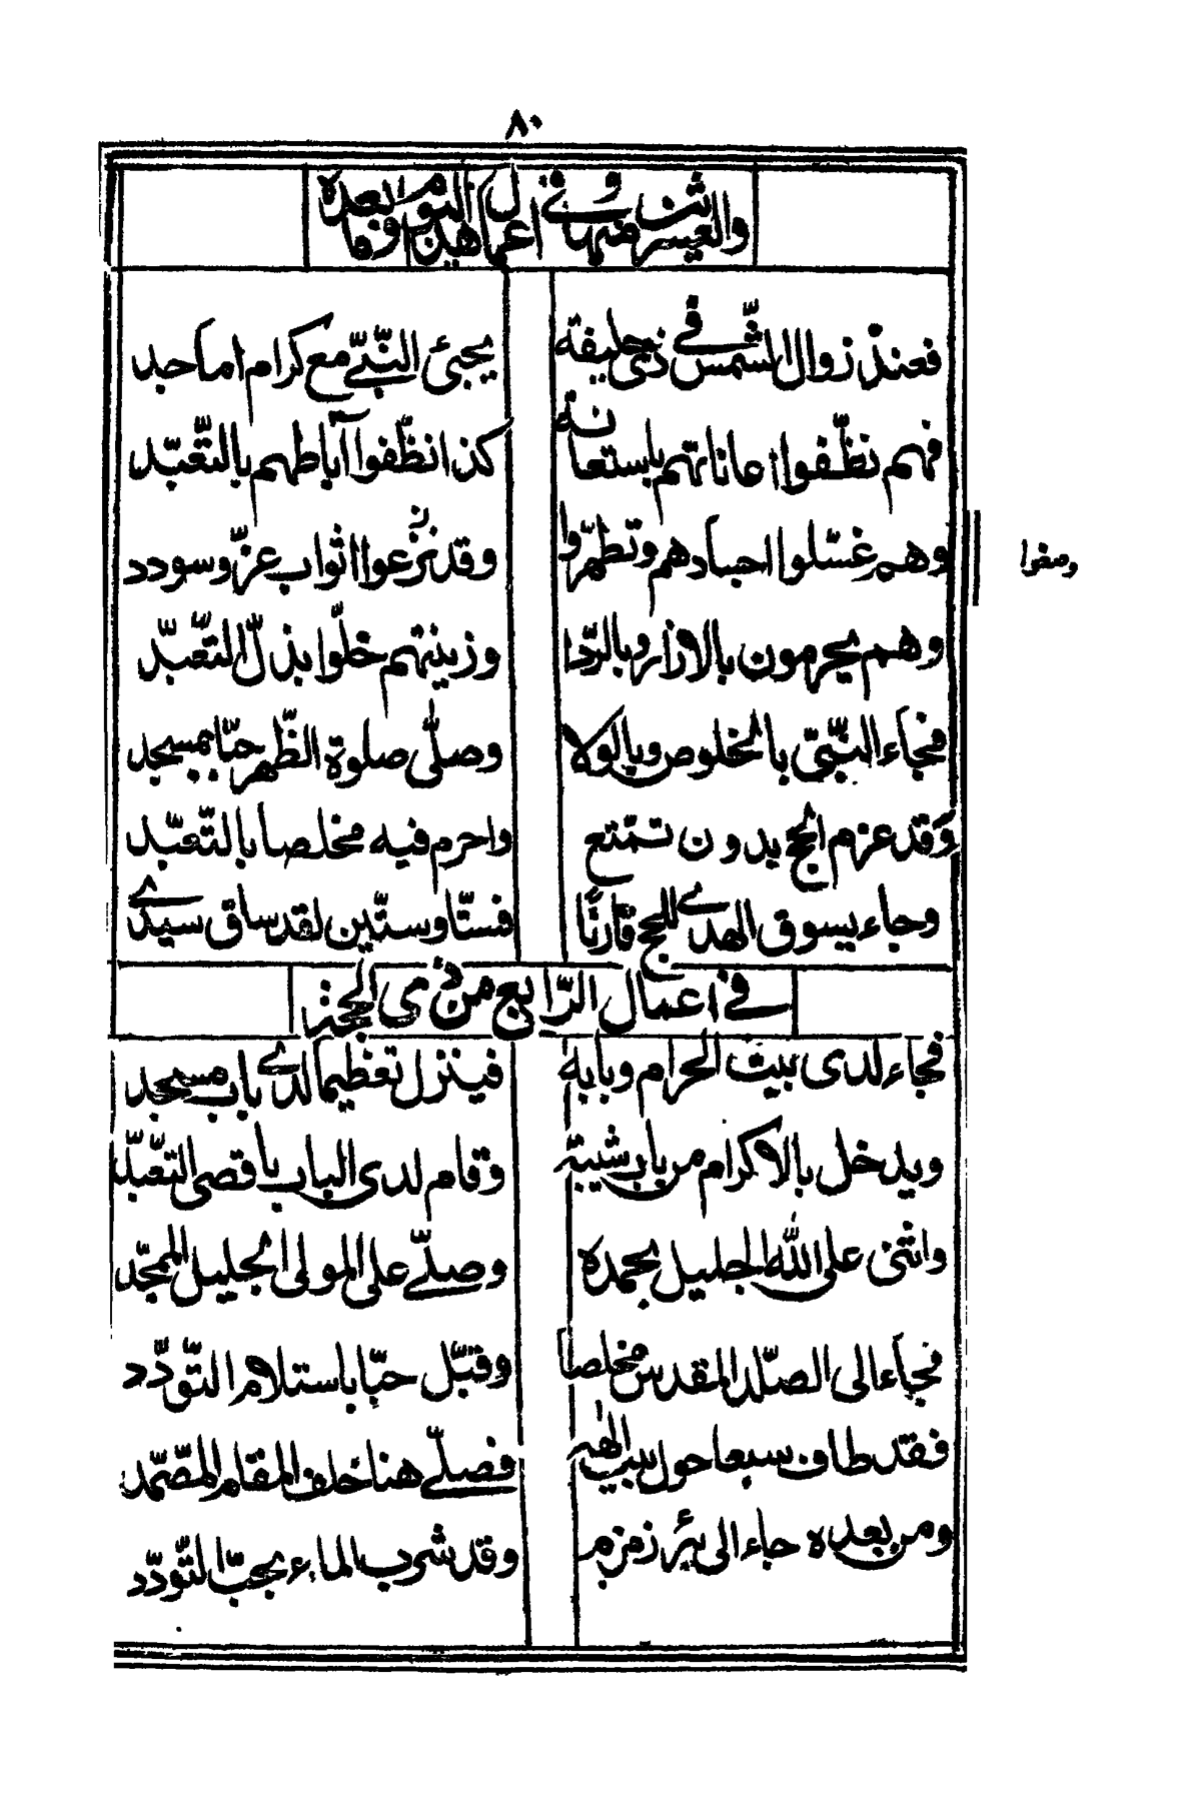 ٨٠
والعشرين منها في اعمال هذا اليوم وما بعده
فعند زوال الشّمس في ذي حليفة يجيئ النّبيّ مع كرام اماجد
فهم نظّفوا اعاناتهم باستعانة كذا نظّفوا آباطهم بالتّعبّد
وهم غسّلوا اجسادهم وتطهّروا وقد نزعوا اثواب عزّ وسودد
وصفوا
وهم يحرمون بالازار وبالرّدا وزينتهم خلّوا بذلّ التّعبّد
فجاء النّبيّ بالخلوص وبالولا وصلّى صلوة الظّهر حبّا بمسجد
وقد عزم الحج بدون تمتع واحرم فيه مخلصا بالتّعبّد
وجاء يسوق الهدي للحج قارنًا فستّا وستّين لقد ساق سيدي
في اعمال الرّابع من ذي الحجة
فجاء لدى بيت الحرام وبابه فينزل تعظيما لدي باب مسجد
ويدخل بالاكرام من باب شيبة وقام لدى الباب باقصى التعبّد
واثنى على اللّٰه الجليل بحمده وصلّي على المولى الجليل الممجّد
فجاء الى الصّلد المقدس مخلصا وقبّل حبّا باستلام التّودّد
فقد طاف سبعا حول بيت الٰهه فصلّي هنا خلف المقام المصمّد
ومن بعده جاء الى بئر زمزم وقد شرب الماء بحبّ التّودّد